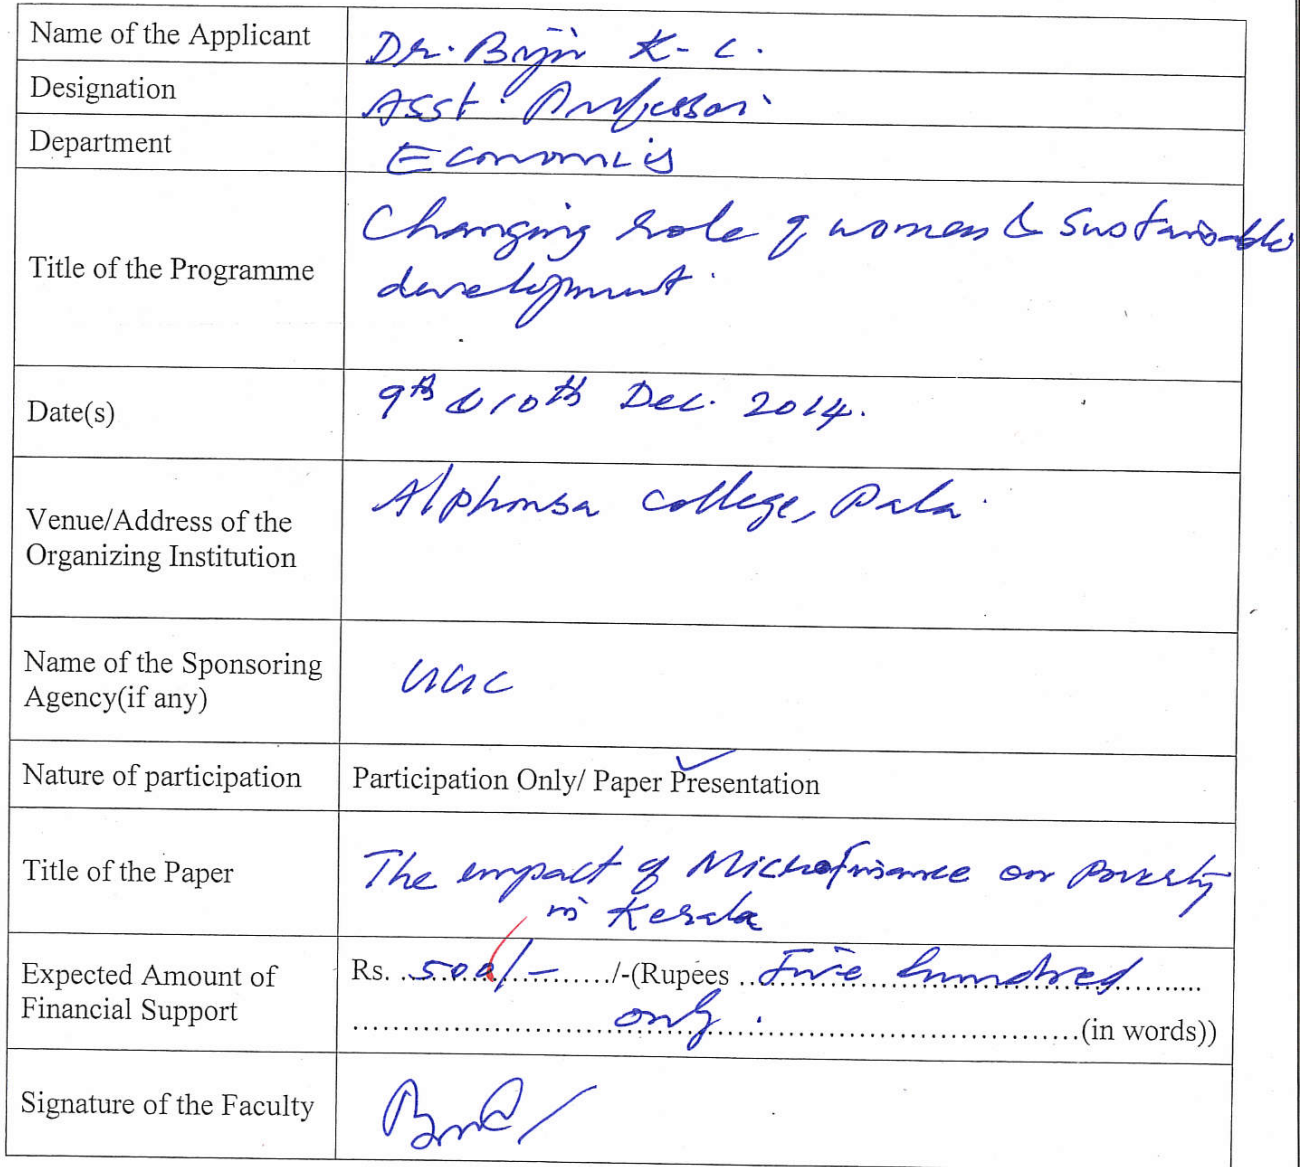 Name of the Applicant Dr. Bijin K-C.
Designation Asst. Professor
Department Economics
Title of the Programme Changing role of women & Sustainable
development
Date(s) 9th & 10th Dec. 2014.
Venue/Address of the
Organizing Institution
Alphonsa College, Pala
Name of the Sponsoring
Agency(if any)
UGC
Nature of participation Participation Only/ Paper Presentation
Title of the Paper The impact of Microfinance on Poverty
in Kerala
Expected Amount of
Financial Support
Rs. ..500/-........./-(Rupees ..Five hundred......
........................only.................................(in words))
Signature of the Faculty